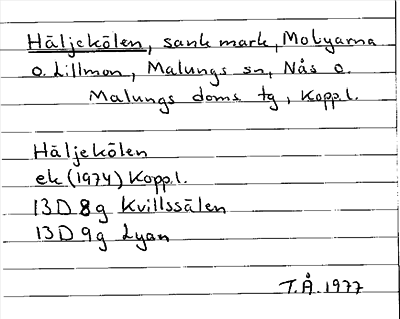 Häljekölen, sank mark, Motyarna
o. Lillmon, Malungs sn, Nås o.
Malungs doms. tg, Koppl.
Häljekölen
ek (1974) Koppl.
13D 8g Kvillssälen
13D 9g Lyan
T.Å. 1977